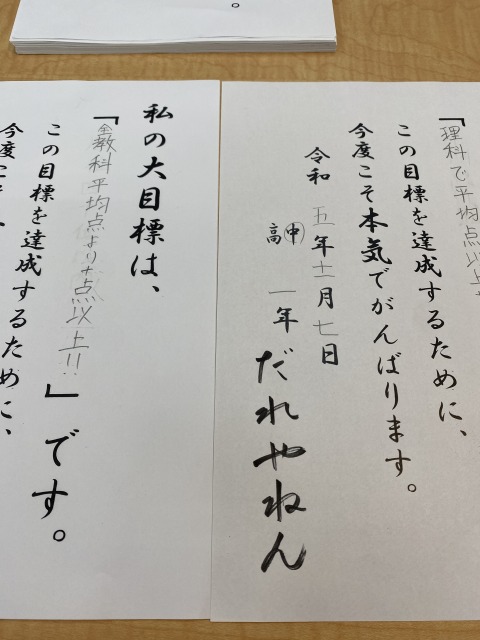 。
「理科で平均点以上
この目標を達成するために、
今度こそ本気でがんばります。
令和 五年十一月七日
高中 一年 だれやねん
私の大目標は、
「全教科平均点より十点以上!!」です。
この目標を達成するために、
今度こ